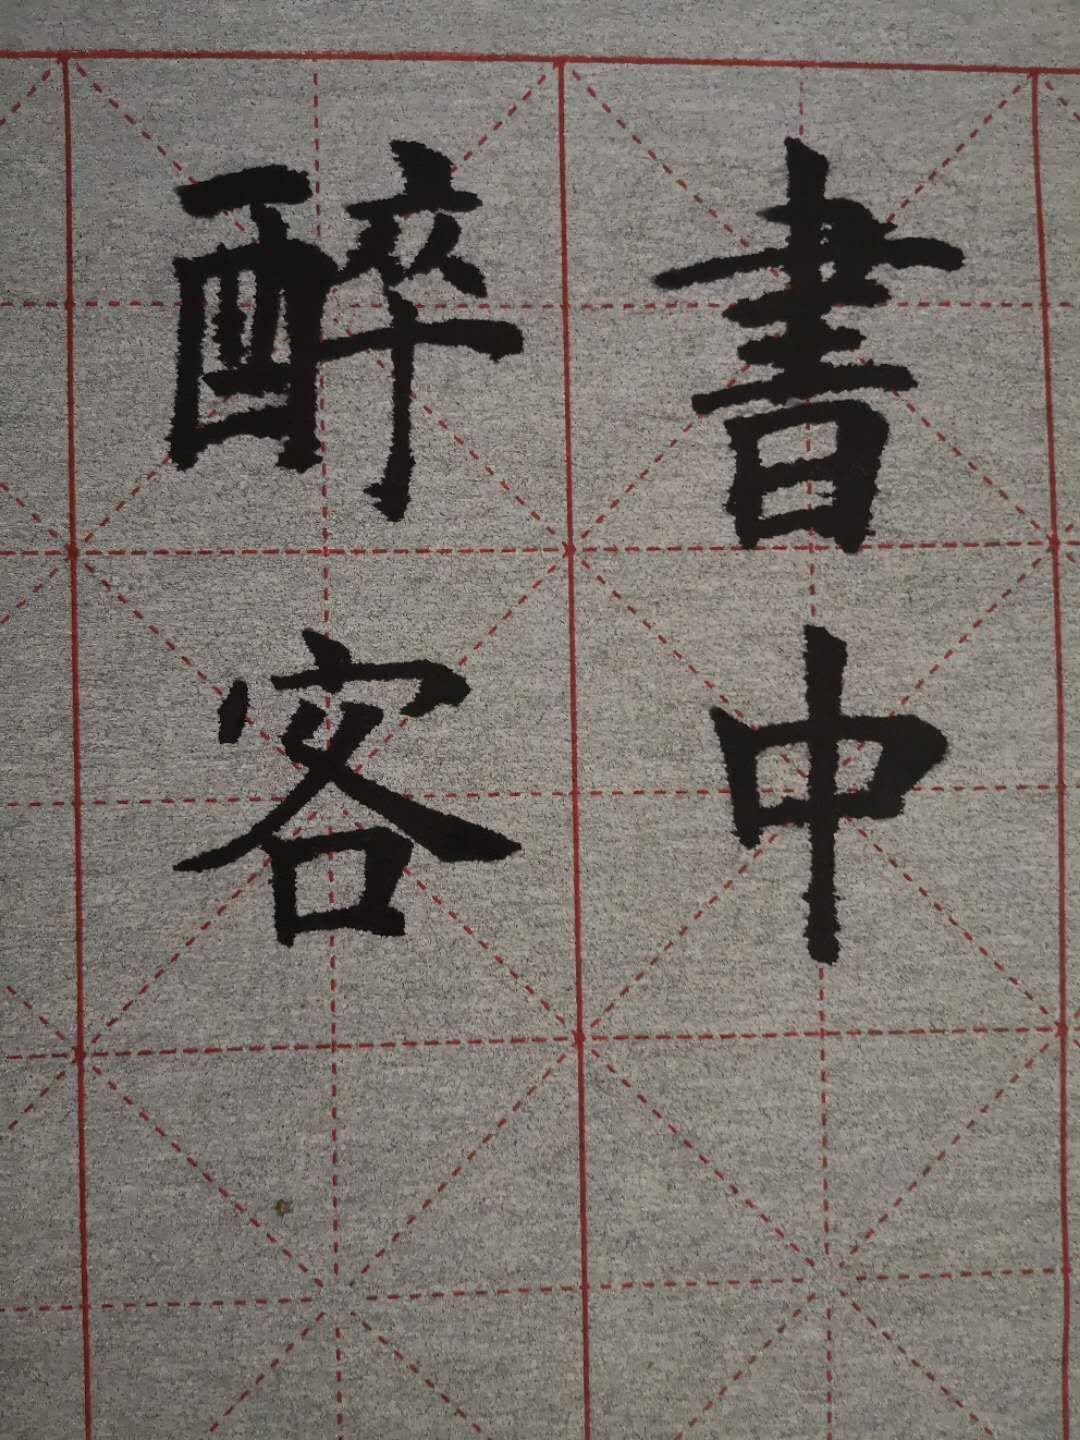 書中
醉客